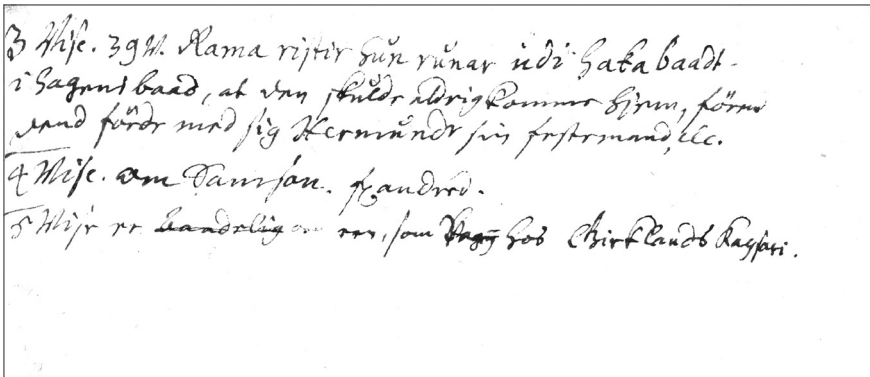 3 Vise. 39 V. Rama ristir hun runar udi haka baadt
i hagens baad, at den skulde aldrig komme hjem, fören
dend förde med sig Hermundr sin festemand, etc.
4 Vise. om Samson.
5 Vise er om een, som hos Girklands Kaysari.